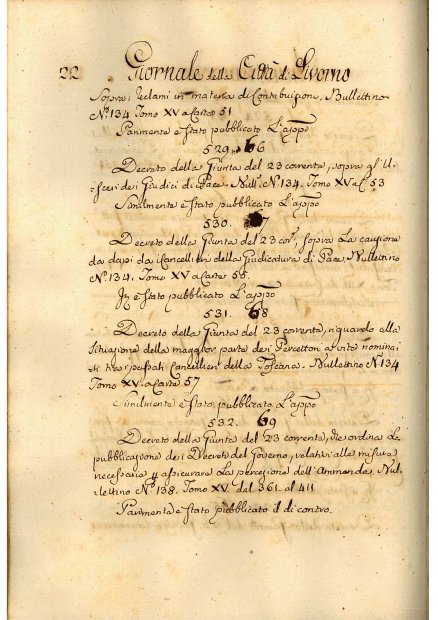 22 Giornale della Città di Livorno
Sopra i reclami in materia di Contribuzione. Bullettino
N.º 134 Tomo XV a Carte 51.
Parimente è stato pubblicato L'app.º
529. 66
Decreto della Giunta del 23 corrente, sopra gl' U-
scieri dei Giudici di Pace. Bull.º N.º 134. Tomo XV a C.º 53
Similmente è stato pubblicato L'app.º
530. 67
Decreto della Giunta del 23 cor.º, sopra La cauzione
da darsi da i Cancellieri della Giudicatura di Pace. Bullettino
N.º 134. Tomo XV a Carte 55.
è stato pubblicato L'app.º
531. 68
Decreto della Giunta del 23 corrente, riguardo alla
situazione della maggior parte dei Percettori a vite nomina-
ti tra i passati Cancellieri della Toscana. Bullettino N.º 134
Tomo XV a Carte 57
Similmente è stato pubblicato L'app.º
532. 69
Decreto della Giunta del 23 corrente, che ordina La
pubblicazione dei Decreti del Governo, relativi alle misure
necessarie p assicurare La percezione dell' Ammende. Bul-
lettino N.º 138. Tomo XV dal 361. al 411
Parimente è stato pubblicato il di contro.